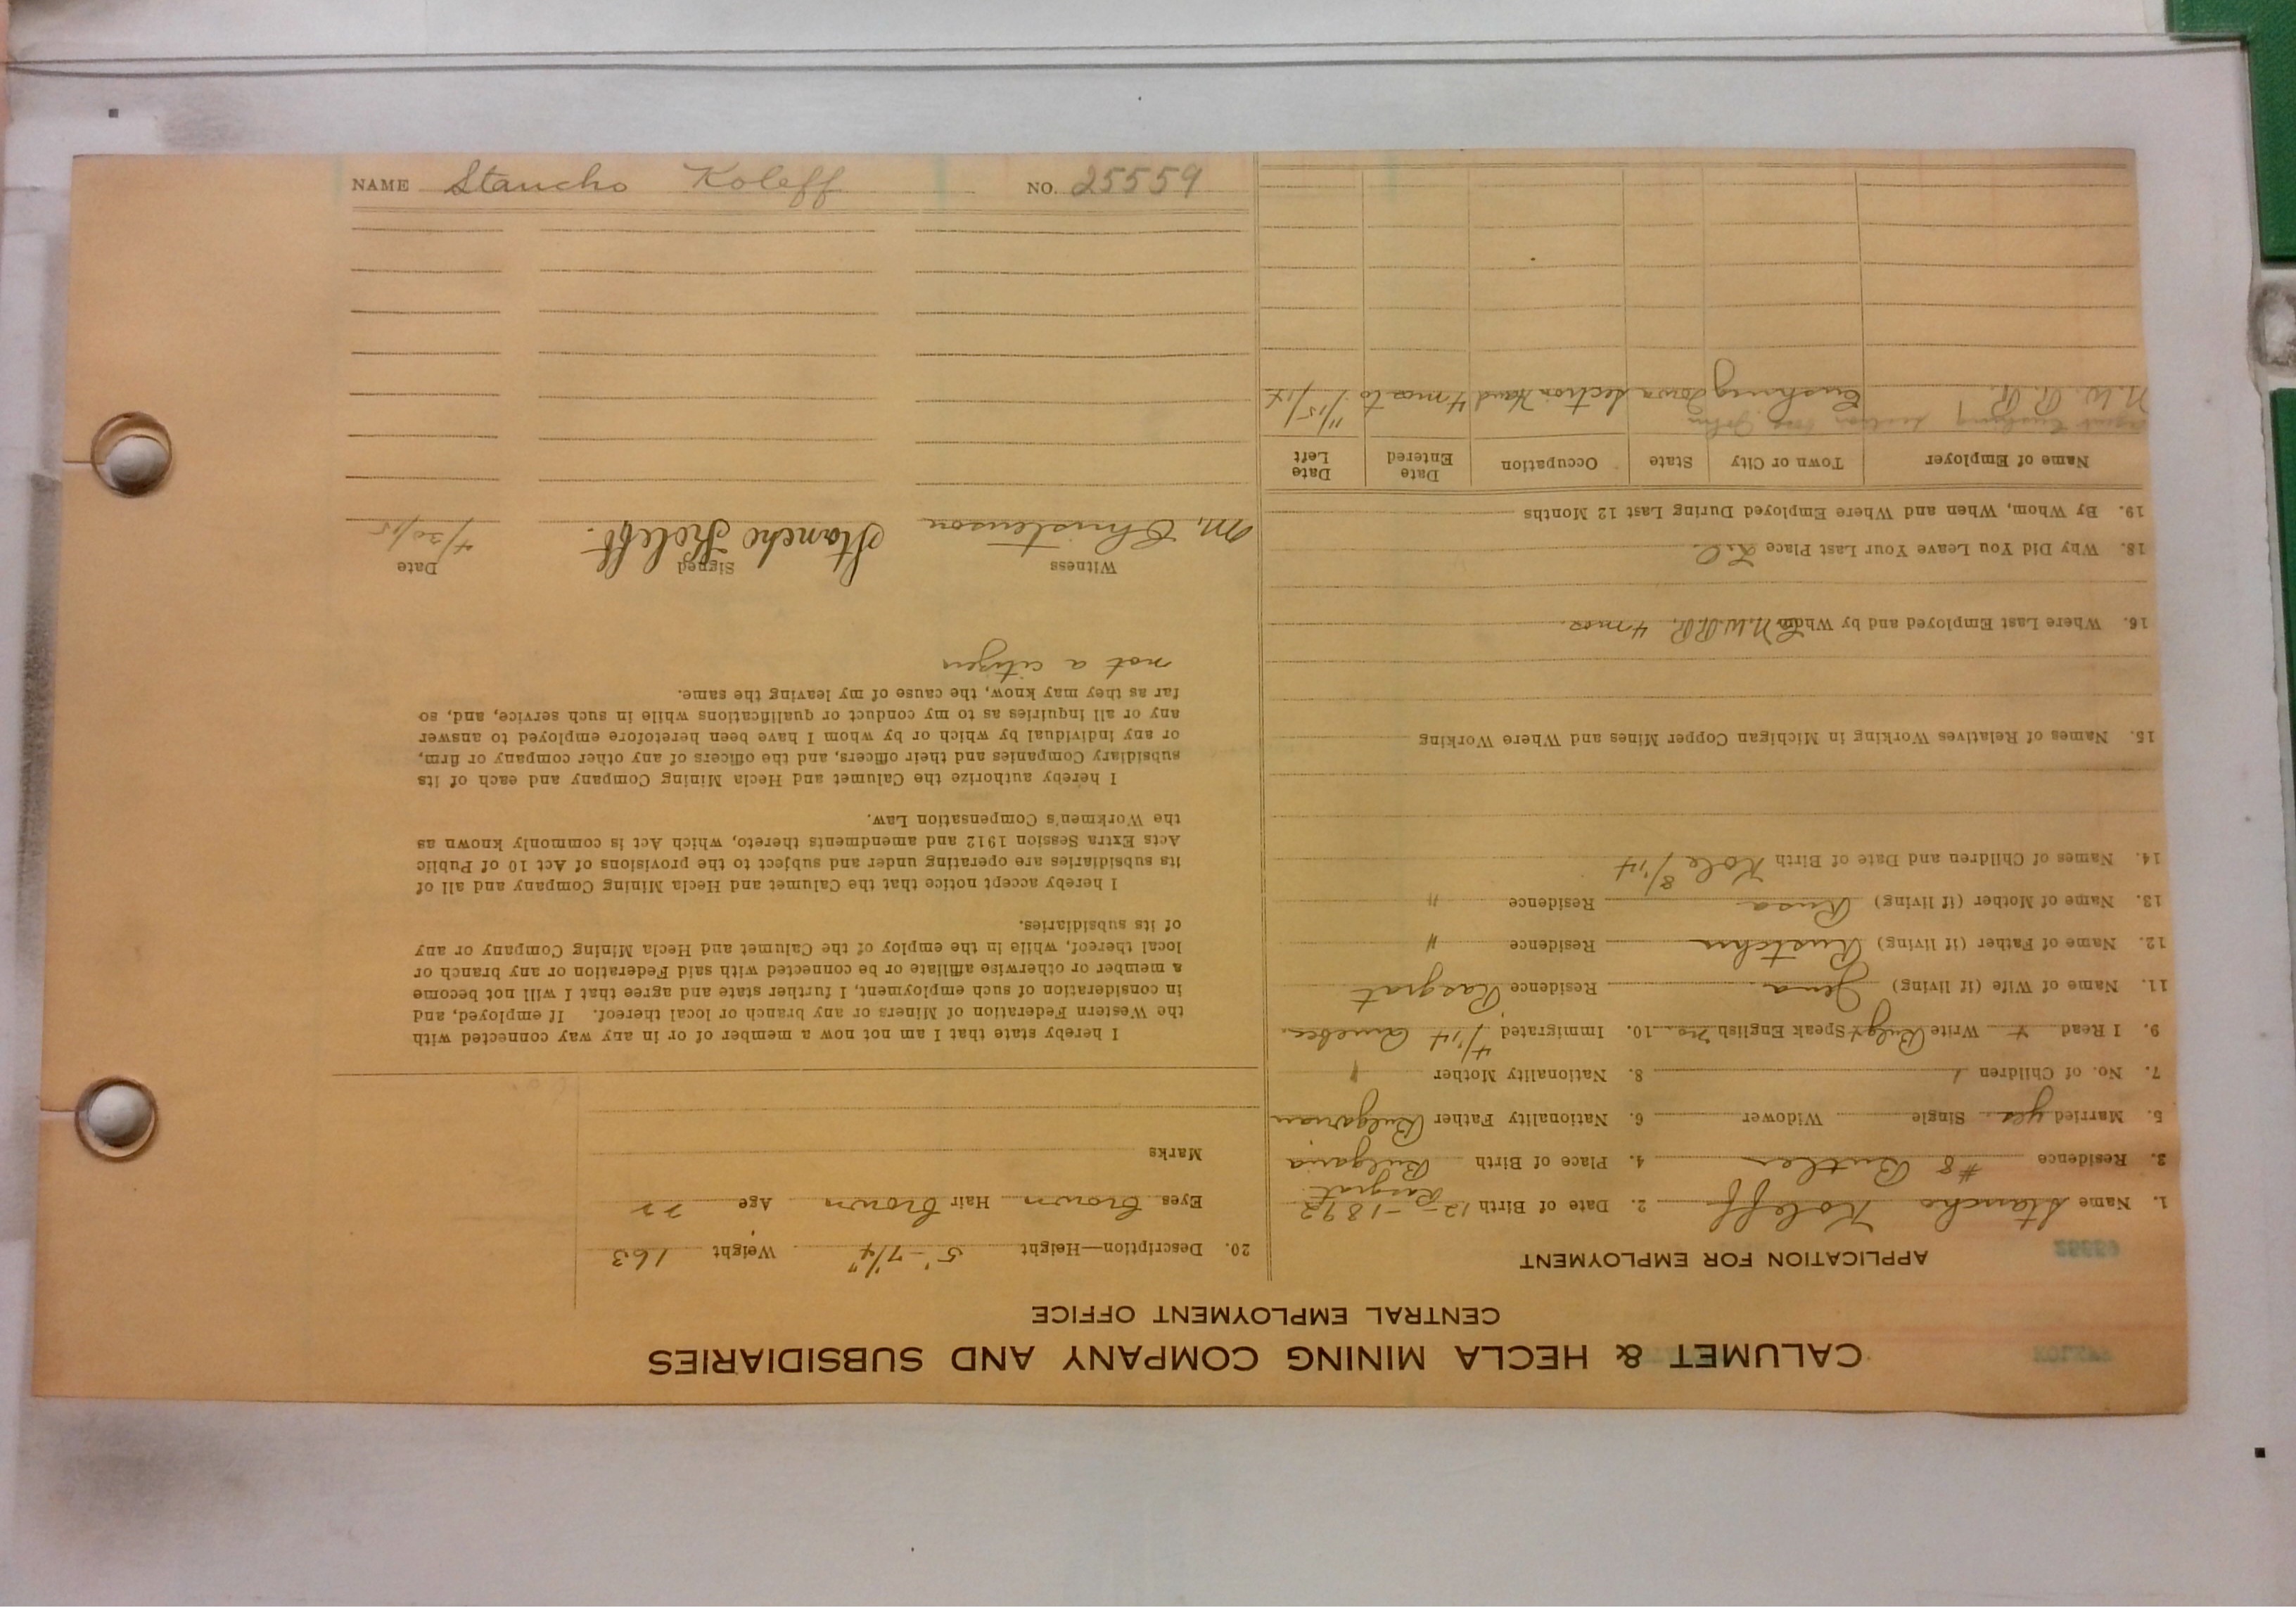 CALUMET & HECLA MINING COMPANY AND SUBSIDIARIES
CENTRAL EMPLOYMENT OFFICE
25559
APPLICATION FOR EMPLOYMENT
1. Name Stancho Koleff 2. Date of Birth 12-1-1892
Rasgrat
3. Residence #8 Butler 4. Place of Birth Bulgaria
5. Married yes Single Widower 6. Nationality Father Bulgarian
7. No. of Children 1 8. Nationality Mother "
9. I Read + Write Bulg + Speak English no 10. Immigrated 4/14 Quebec
11. Name of Wife (if living) Jena Residence Rasgrat
12. Name of Father (if living) Residence "
13. Name of Mother (if living) Rusa Residence "
14. Names of Children and Date of Birth Kole 8/14
15. Names of Relatives Working in Michigan Copper Mines and Where Working
16. Where Last Employed and by Whom N.W.R.R. 4 mos.
18. Why Did You Leave Your Last Place
19. By Whom, When and Where Employed During Last 12 Months
Name of Employer Town or City State Occupation Date Entered Date Left
N.W. R.R. Cushing Iowa Section Hand 4 mos to 11/15/14
20. Description—Height 5'-7¼" Weight 163
Eyes brown Hair brown Age 22
Marks
I hereby state that I am not now a member of or in any way connected with
the Western Federation of Miners or any branch or local thereof. If employed, and
in consideration of such employment, I further state and agree that I will not become
a member or otherwise affiliate or be connected with said Federation or any branch or
local thereof, while in the employ of the Calumet and Hecla Mining Company or any
of its subsidiaries.
I hereby accept notice that the Calumet and Hecla Mining Company and all of
its subsidiaries are operating under and subject to the provisions of Act 10 of Public
Acts Extra Session 1912 and amendments thereto, which Act is commonly known as
the Workmen's Compensation Law.
I hereby authorize the Calumet and Hecla Mining Company and each of its
subsidiary Companies and their officers, and the officers of any other company or firm,
or any individual by which or by whom I have been heretofore employed to answer
any or all inquiries as to my conduct or qualifications while in such service, and, so
far as they may know, the cause of my leaving the same.
not a citizen
Witness Signed Date
M. Christenson Stancho Koleff. 4/30/15
NAME Stancho Koleff NO. 25559